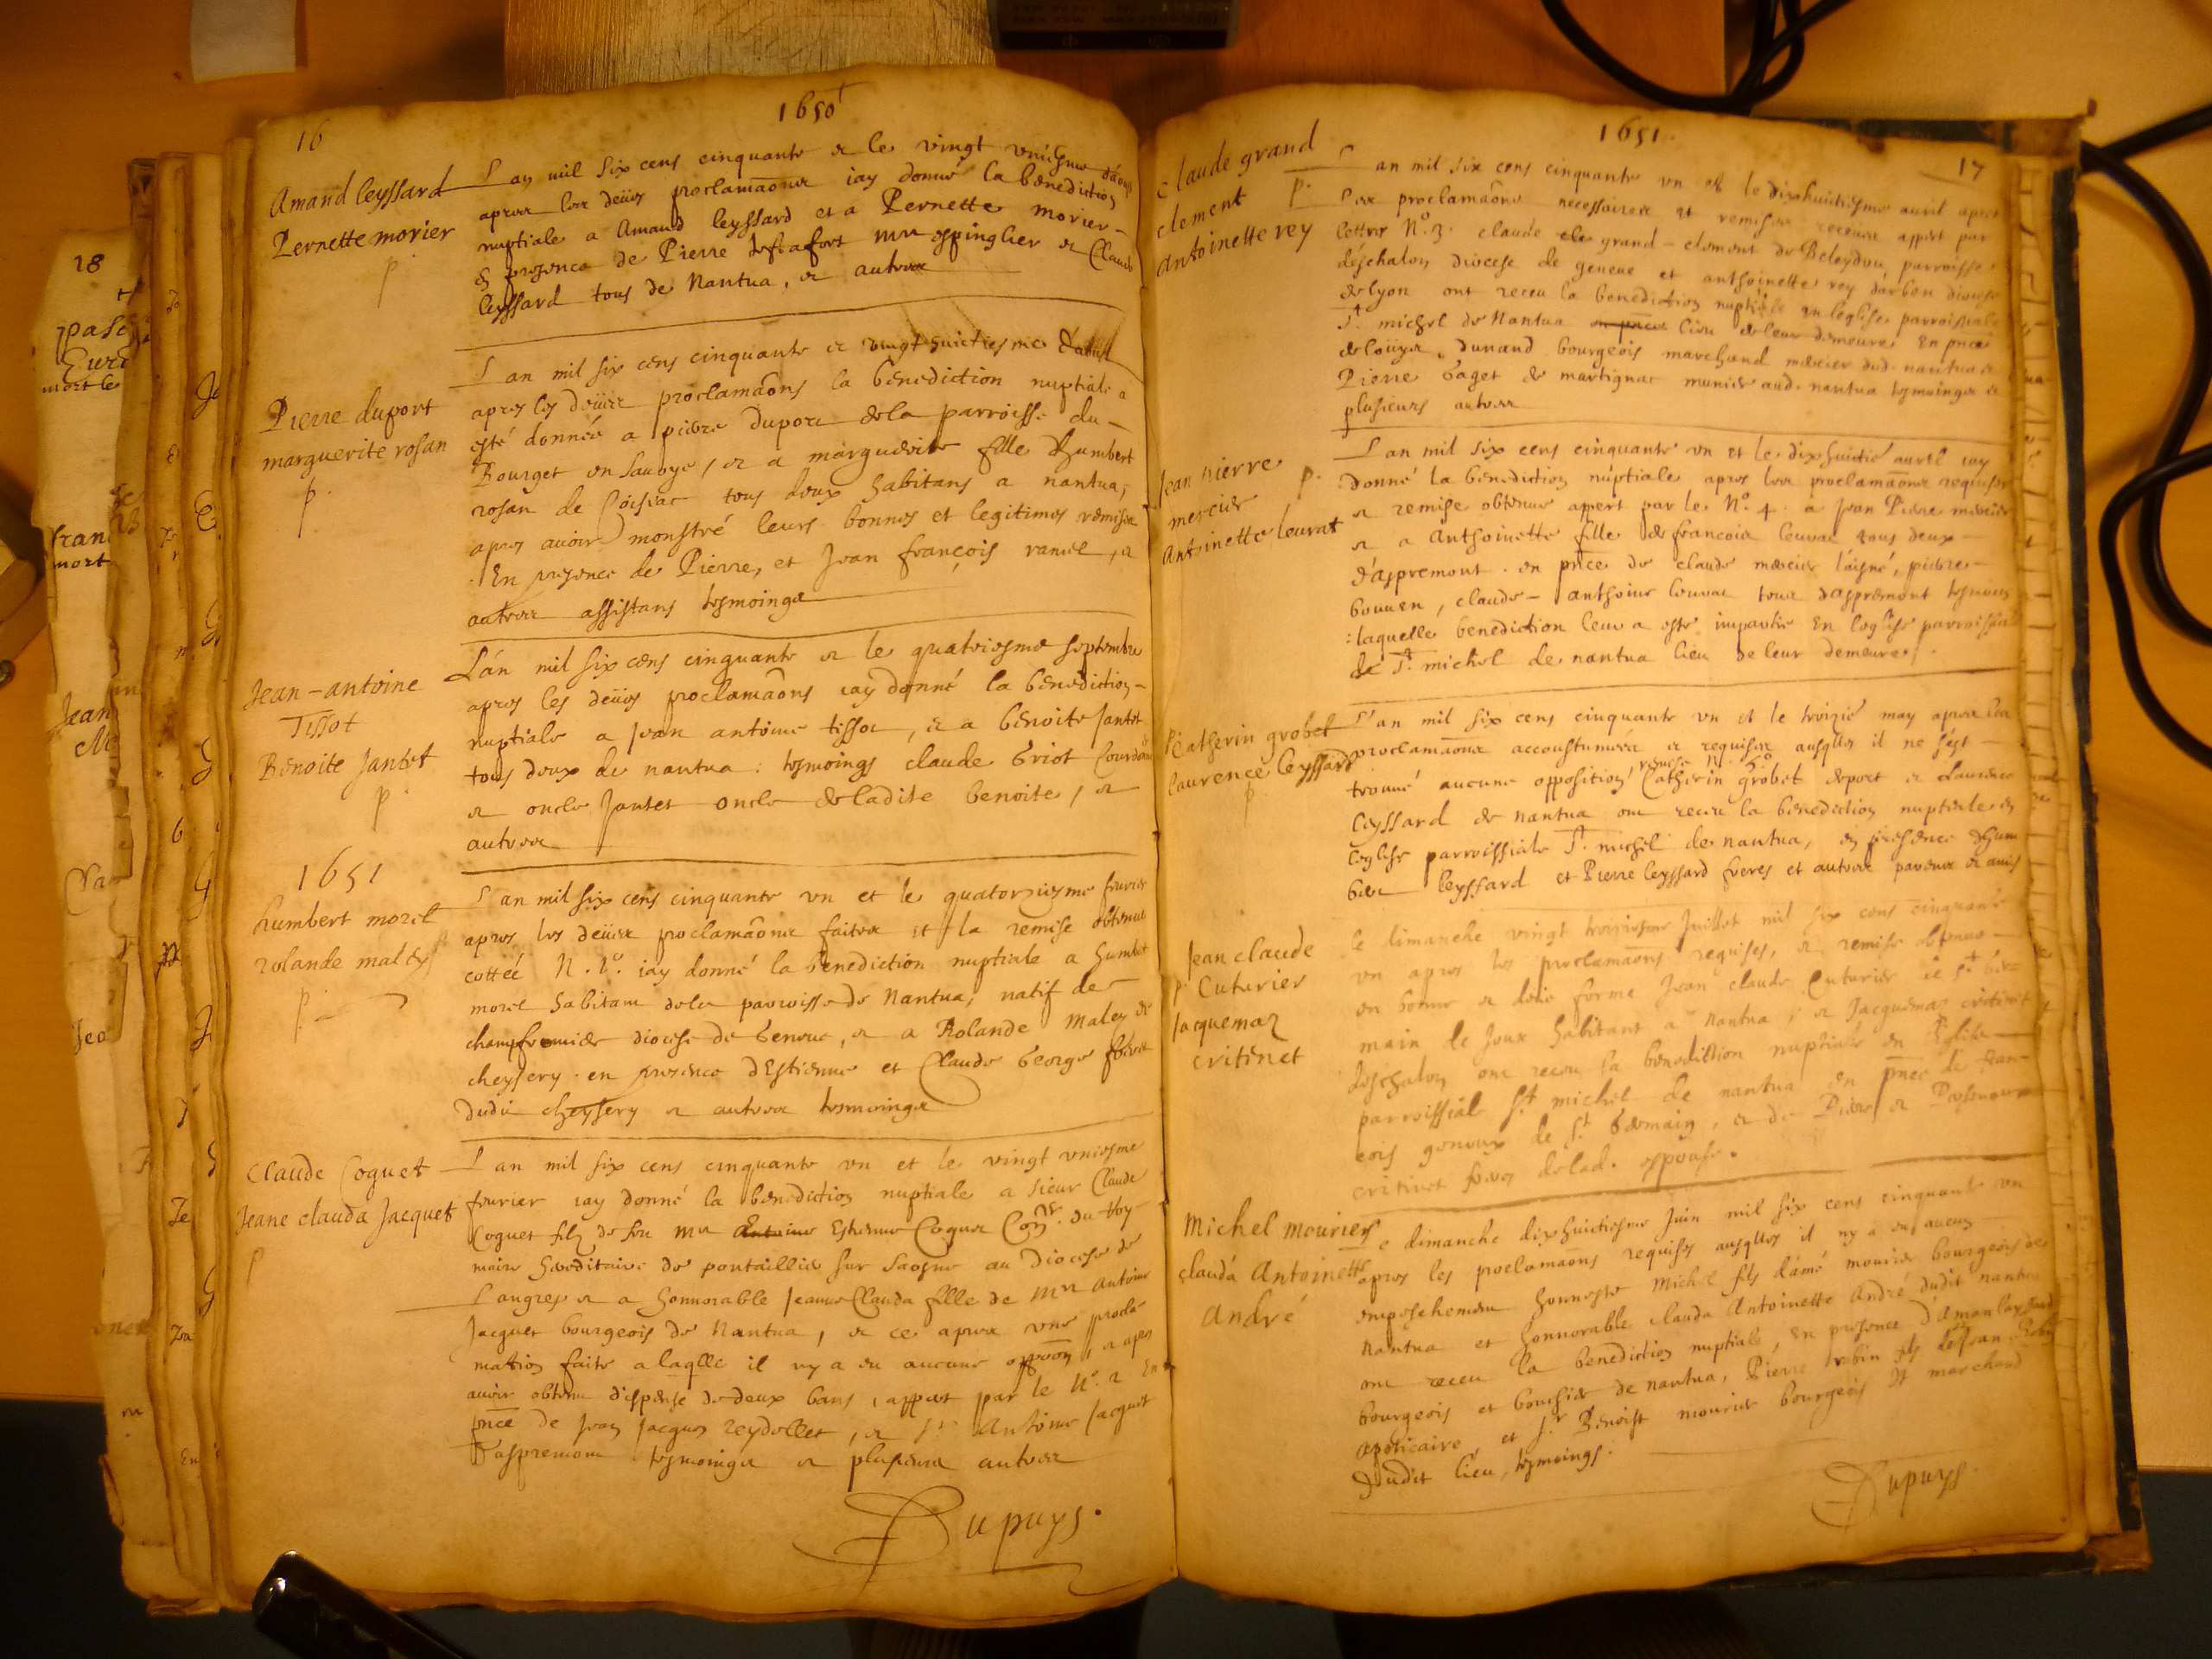 16
1650
Amand leyssard
Pernette morier
p.
L an mil six cens cinquante et le vingt uniesme d'aoust
apres les deües proclamaõns iay donné la benediction
nuptiale a Amand leyssard et a Pernette morier
en presence de Pierre mre espinglier et Claude
leyssard tous de Nantua, et autres
Pierre duport
marguerite rosan
p.
L an mil six cens cinquante et vingt huictiesme d'aoust
apres les deües proclamaõns la benediction nuptiale a
esté donnée a pierre duport de la parroisse du
Bourget en Sauoye, et a marguerite fille d'humbert
rosan de tous deux habitans a nantua,
apres auoir monstré leurs bonnes et legitimes remises
En presence de Pierre, et Jean françois ramel, et
autres assistans tesmoings
Jean-antoine
Tissot
Benoite Jantet
p
L'an mil six cens cinquante et le quatriesme septembre
apres les deües proclamaõns iay donné la benediction
nuptiale a Jean antoine tissot, et a benoite Jantet
tous deux de nantua : tesmoings claude briot
et oncle Jantet oncle de ladite benoite, et
autres
1651
humbert morel
rolande malty
p.
L an mil six cens cinquante un et le quatorziesme feurier
apres les deües proclamaõns faites et la remise obtenue
cottée N. 1º. iay donné la benediction nuptiale a humbert
morel habitant de la parroisse de Nantua, natif de
champfromier diocese de Geneue, et a Rolande maley de
cheysery. en presence d'Estienne et Claude George freres
dudit cheysery et autres tesmoings
Claude Coquet
Jeane clauda Jacquet
p
L an mil six cens cinquante un et le vingt uniesme
feurier iay donné la benediction nuptiale a sieur Claude
Coquet filz de feu mre Antoine Estienne Coquet Conr. du Roy
maire hereditaire de pontaillie sur Saosne au Diocese de
Langres et a honnorable Jeanne Clauda fille de mre antoine
Jacquet bourgeois de Nantua, et ce apres une procla
mation faite a laqlle il ny a eu aucune oppoõn, et apres
auoir obtenu dispense de deux bans, appert par le N. 2 En
pñce de Jean Jacques reydellet, et Sr Antoine Jacquet
d'aspremont tesmoings et plusieurs autres
Dupuys.
1651.
17
claude grand
clement p.
antoinette rey
L an mil six cens cinquante un et le dixhuictiesme auril apres
les proclamaõns necessaires et remises receues appert par
lettres Nº. 3. claude cle grand-clement de Beleydou, parroisse
d'eschalon diocese de geneue et anthoinette rey darbon diocese
de lyon ont receu la benediction nuptiale en leglise parroissiale
St. michel de Nantua en pñce lieu de leur demeure En pñce
de dunand bourgeois marchand mercier dud. nantua et
Pierre baget de martignat munier aud. nantua tesmoings et
plusieurs autres
Jean pierre p.
mercier
Antoinette leurat
L an mil six cens cinquante un et le dixhuictie auril iay
donné la benediction nuptiale apres les proclamaõns requises
et remise obtenue appert par le Nº. 4. a Jean Pierre mercier
et a Anthoinette fille de francois leurat tous deux
d'aspremont. en pñce de claude mercier l'aisné, pierre
bouuen, claude-anthoine leurat tous d'aspremont tesmoings
:laquelle benediction leur a esté impartie En leglise parroissiale
de St. michel de nantua lieu de leur demeure.
Catherin grobet
laurence leyssard
p
L'an mil six cens cinquante un et le troizie may apres les
proclamaõns accoustumées et requises ausqlles il ne s'est
trouué aucune opposition remise Nº. 5º Catherin grobet deport et laurence
leyssard de nantua ont receu la benediction nuptiale en
leglise parroissiale St. michel de nantua, en presence d'hum
bert leyssard et Pierre leyssard freres et autres parens et amis
Jean claude
p Cuturier
Jacquemaz
critinet
le dimanche vingt troisiesme Juillet mil six cens cinquante
un apres les proclamaõns requises, et remise obtenue
en bonne et deüe forme Jean claude Cuturier de St Ger
main de Joux habitant a Nantua, et Jacquemaz critinet
deschalon ont receu la benediction nuptiale en l'eglise
parroissiale St michel de nantua en pñce de fran
cois genoux de St. Germain, et de Pierre et
critinet freres de lad. espouse.
Michel mourier
clauda Antoinette
André
Le dimanche dixhuictiesme Juin mil six cens cinquante un
apres les proclamaõns requises ausqlles il ny a eu aucun
empeschement honneste Michel fils d'amé mourier bourgeois de
Nantua et honnorable clauda Antoinette André dudit nantua
ont receu la benediction nuptiale, En presence d'Aman leyssard
bourgeois et bouchier de nantua, Pierre robin fils de Jean Robin
apoticaire, et Sr. Benoist mourier bourgeois et marchand
dudit lieu, tesmoings.
Dupuys.
18
mort le
mort
Jean